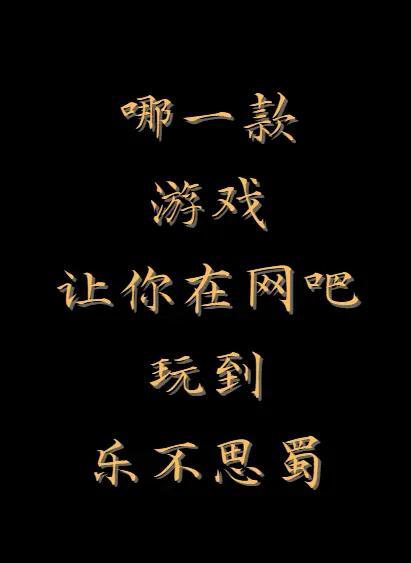 哪一款
游戏
让你在网吧
玩到
乐不思蜀